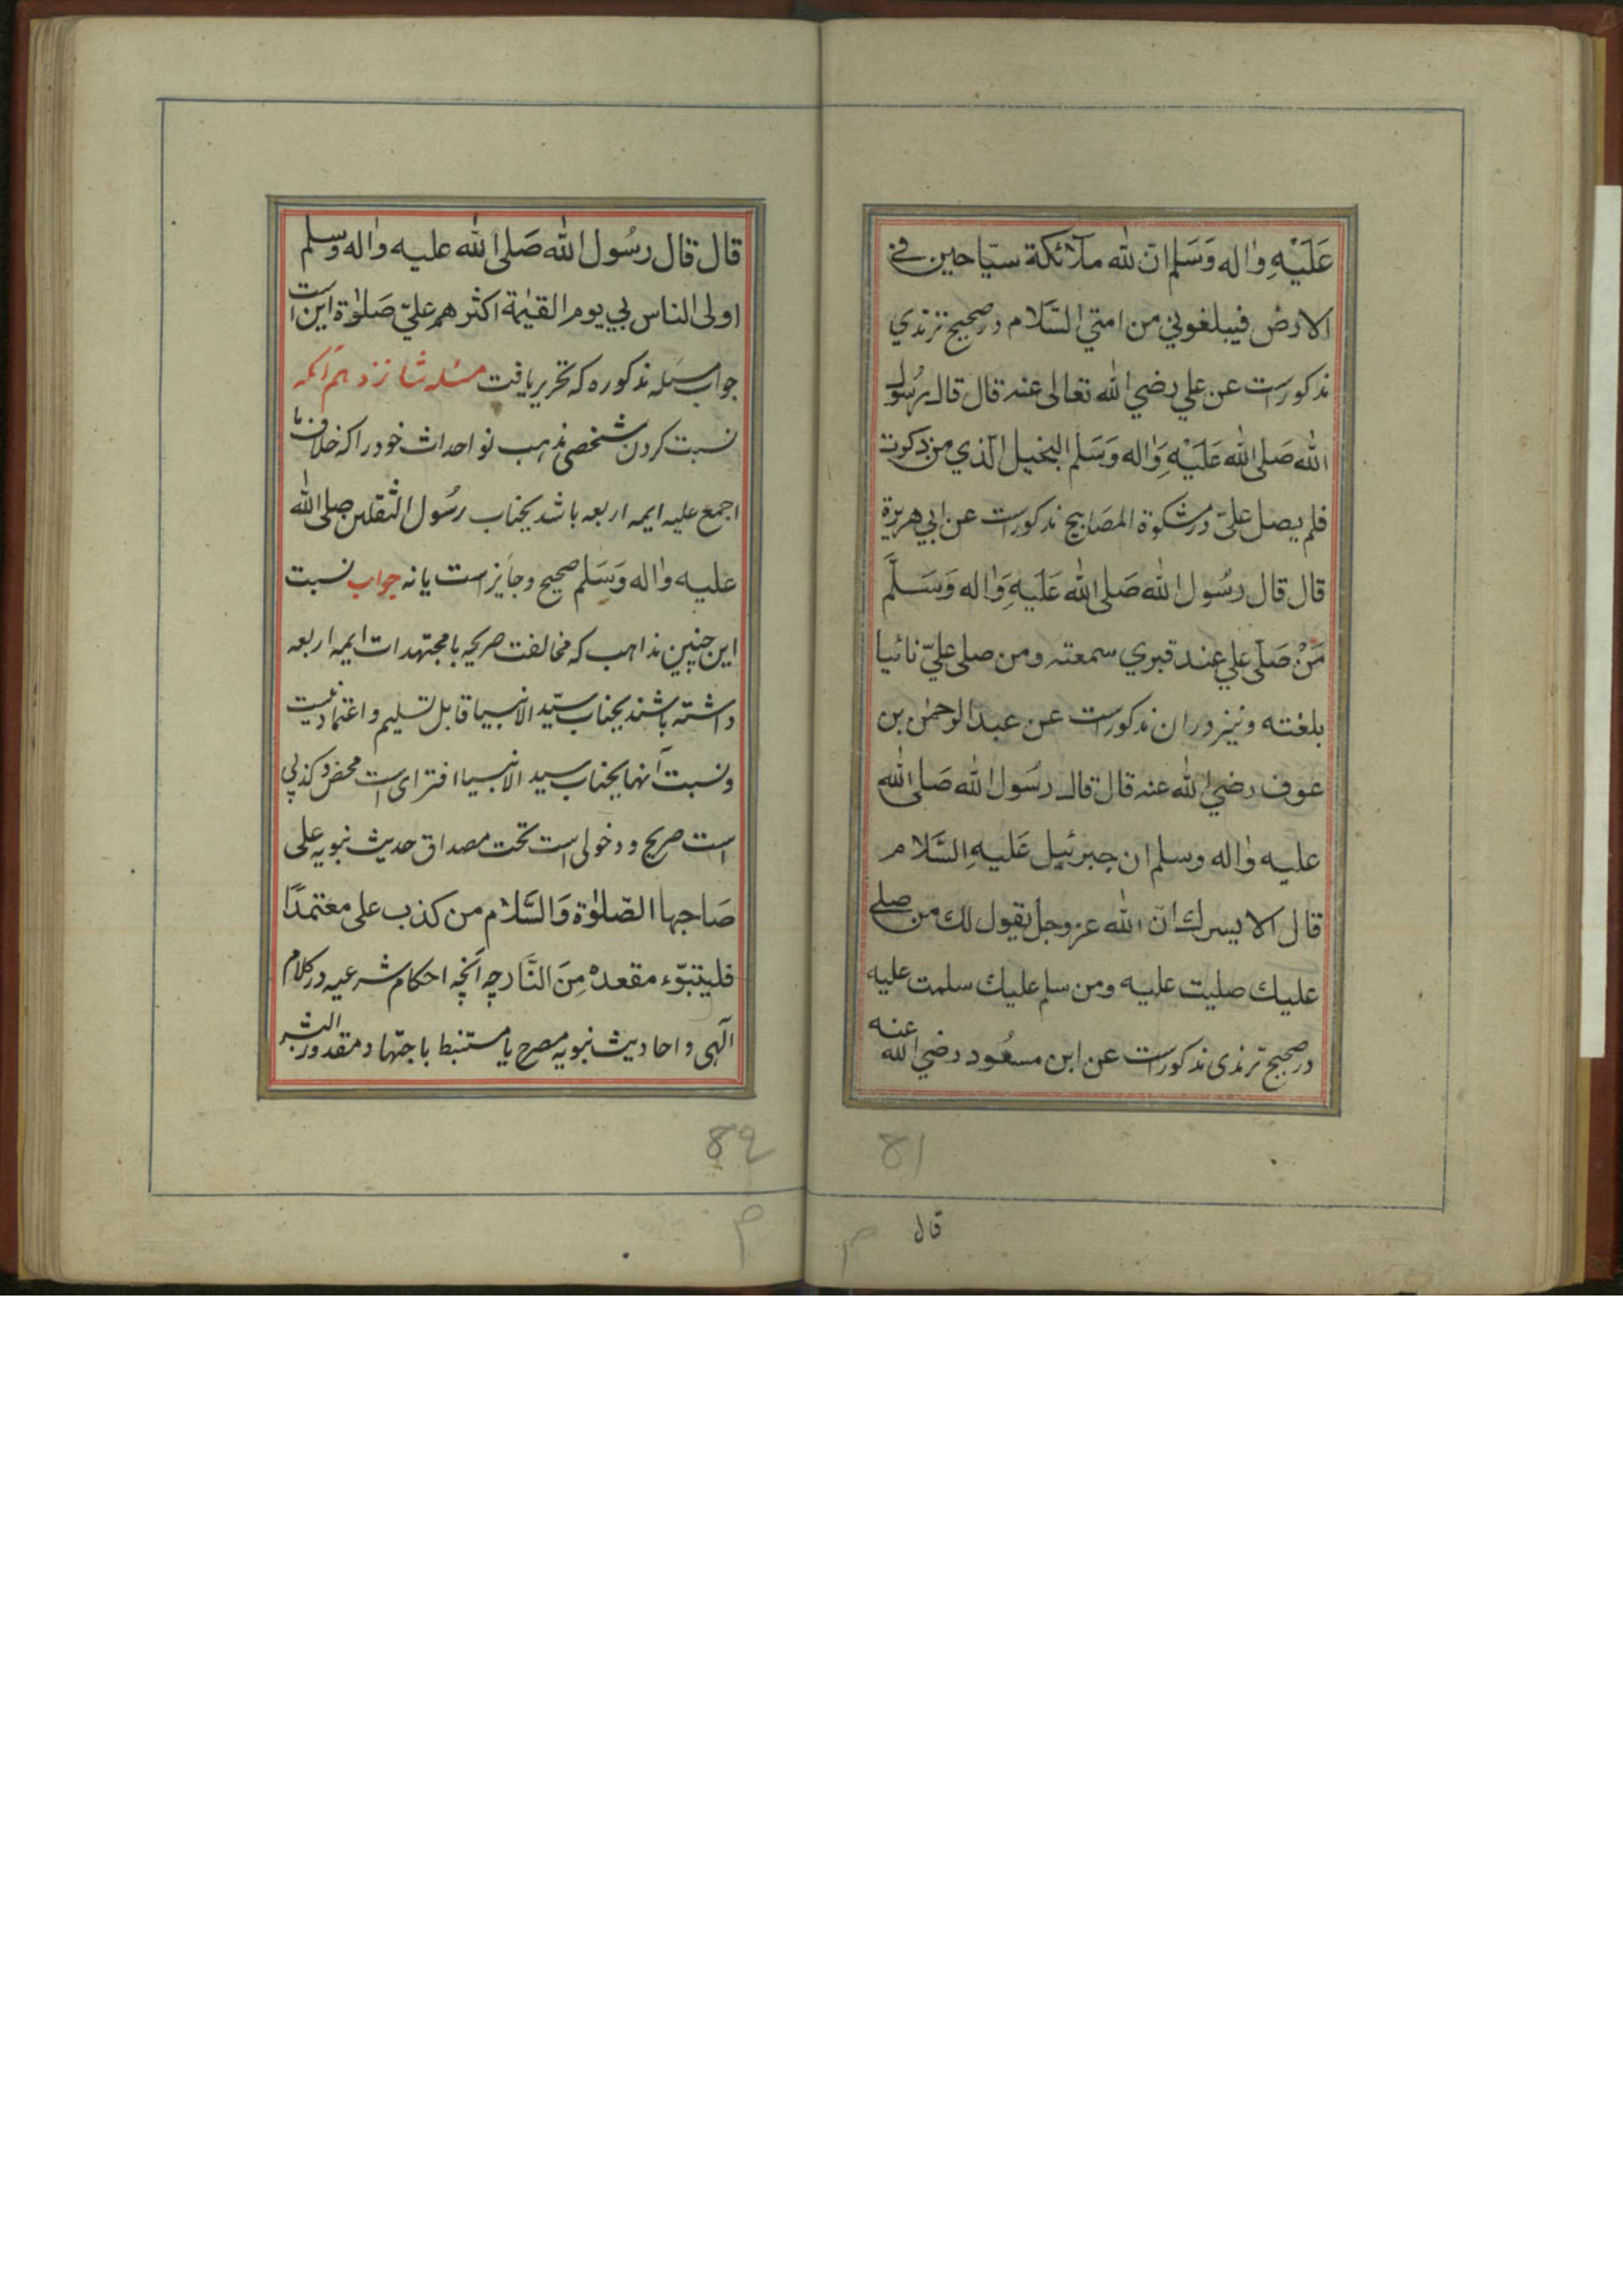 عَلَيْهِ وٰاله وَسَلم انّ لله ملآئكة سيّاحين في
الارض فيبلغوني من امتي السَّلام در صحيح ترندي
مذكورست عن علي رضي الله تعالى عنه قال قال رسُول
الله صَلى الله عَلَيْهِ وَٰاله وَسَلم البخيل الّذي من ذكرت
فلم يصل عليّ در مشكوة المصَابيح مذكورست عن ابي هريرة
قال قال رسُول الله صَلى الله عَلَيهِ وَٰاله وَسَلَّم
مَنْ صَلّى علي عند قبري سمعته ومن صلى عليّ نائيا
بلغته ونيز دران مذكورست عن عبد الرحمٰن بن
عوف رضي الله عنه قال قال رسُول الله صَلى الله
عليه وٰاله وسلم ان جبرئيل عَليهِ السَّلام
قال الا يسرك انّ الله عز وجل يقول لك من صلے
عليك صليت عليه ومن سلم عليك سلمت عليه
در صحيح ترندى مذكورست عن ابن مسعُود رضي الله عنه
81
قال
م
قال قال رسُول الله صَلى الله عليه وٰاله وسلم
اولى الناس بي يوم القيٰمة اكثرهم عليّ صَلوٰة اين است
جواب مسئله مذكوره كه تحرير يافت مسئله شانزدهم آنكه
نسبت كردن شخصى مذهب نو احداث خود را كه خلاف ما
اجمع عليه ايمه اربعه باشد بجناب رسُول الثقلين صلى الله
عليه وٰاله وَسَلم صحيح و جايز است يا نه جواب نسبت
اين چنين مذاهب كه مخالفت صريحه با مجتهدات ايمه اربعه
داشته باشند بجناب سيّد الانبيا قابل تسليم و اعتماد نيست
و نسبت آنها بجناب سيد الانبيا افتراى است محض و كذبى
است صريح و دخولى است تحت مصداق حديث نبويه على
صَاحبها الصّلوٰة وَالسَّلام من كذب على معتمدًا
فليتبوّء مقعدهُ مِنَ النَّار چه آنچه احكام شرعيه در كلام
آلهى و احاديث نبويه مصرح يا مستنبط باجتهاد مقدور البشر
82
م